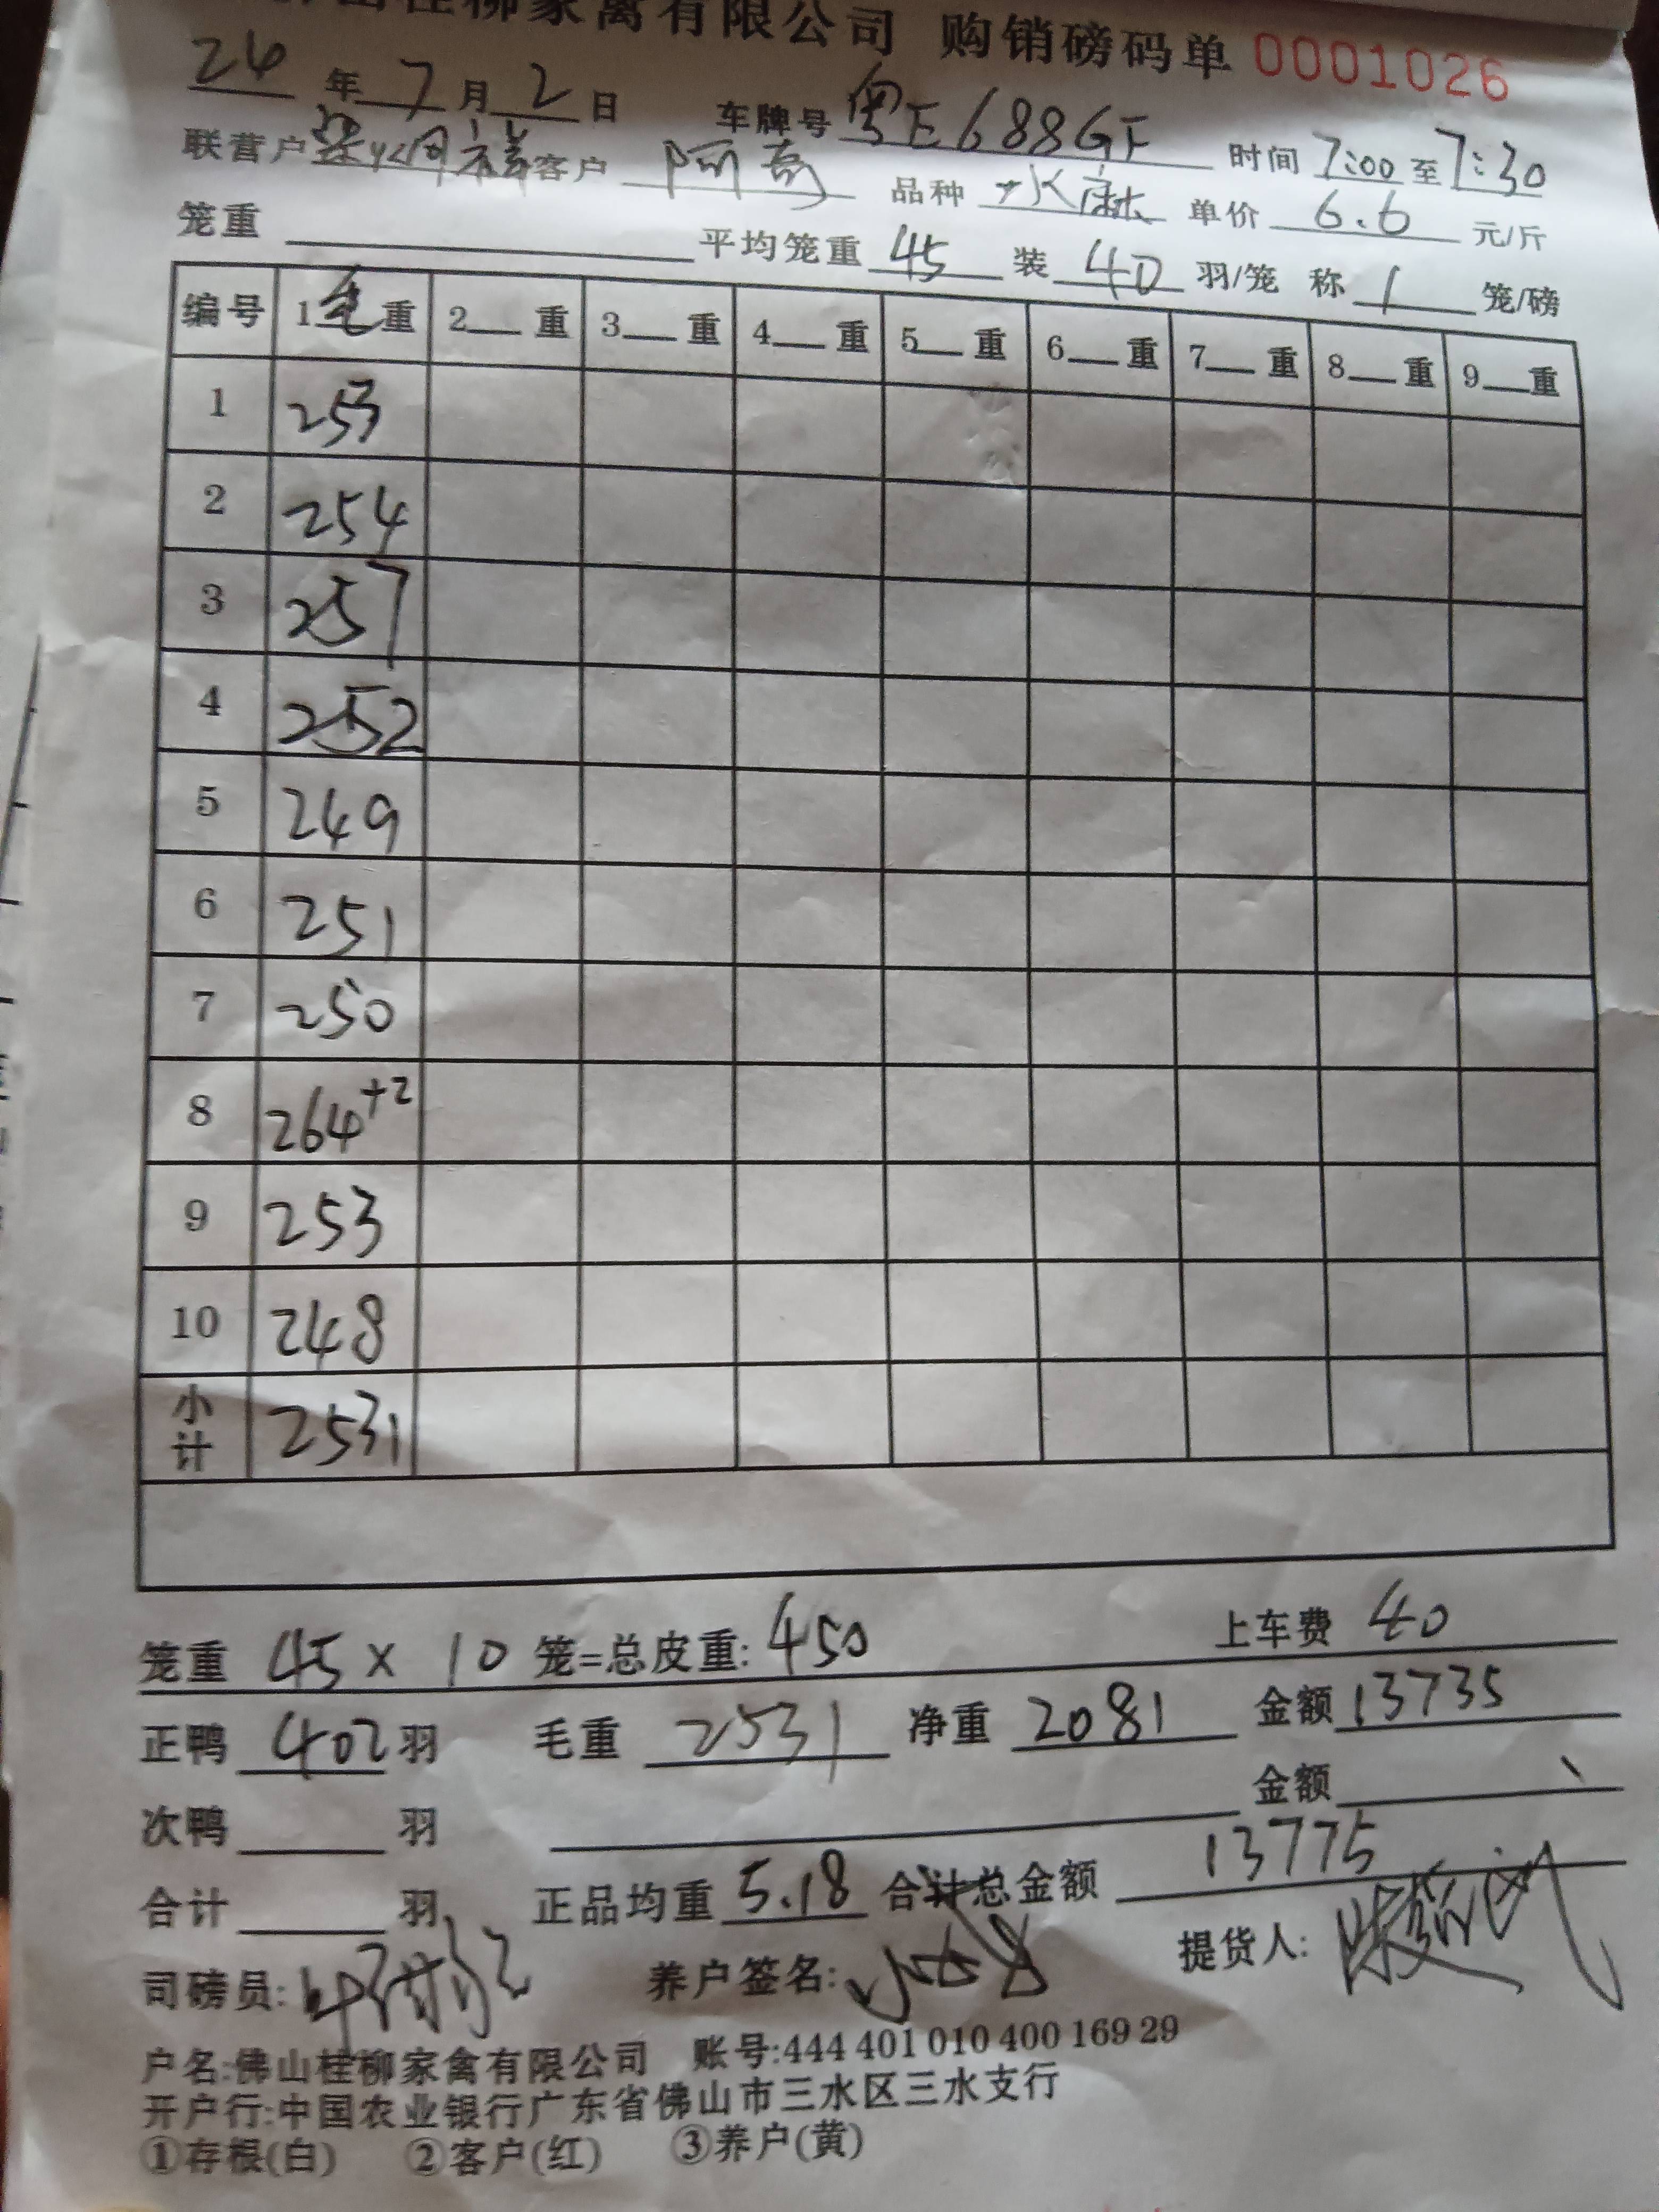 山桂柳家禽有限公司 购销磅码单 0001026
24 年 7 月 2 日 车牌号 粤E688GF 时间 7:00 至 7:30
联营户 客户 阿 品种 水 单价 6.6 元/斤
笼重 平均笼重 45 装 40 羽/笼 称 1 笼/磅
编号 1毛重 2 重 3 重 4 重 5 重 6 重 7 重 8 重 9 重
1 253
2 254
3 257
4 252
5 249
6 251
7 250
8 264+2
9 253
10 248
小计 2531
笼重 45 x 10 笼=总皮重: 450 上车费 40
正鸭 402 羽 毛重 2531 净重 2081 金额 13735
次鸭 羽 金额
合计 羽 正品均重 5.18 合计总金额 13775
司磅员: 养户签名: 提货人:
户名:佛山桂柳家禽有限公司 账号:444 401 010 400 169 29
开户行:中国农业银行广东省佛山市三水区三水支行
①存根(白) ②客户(红) ③养户(黄)